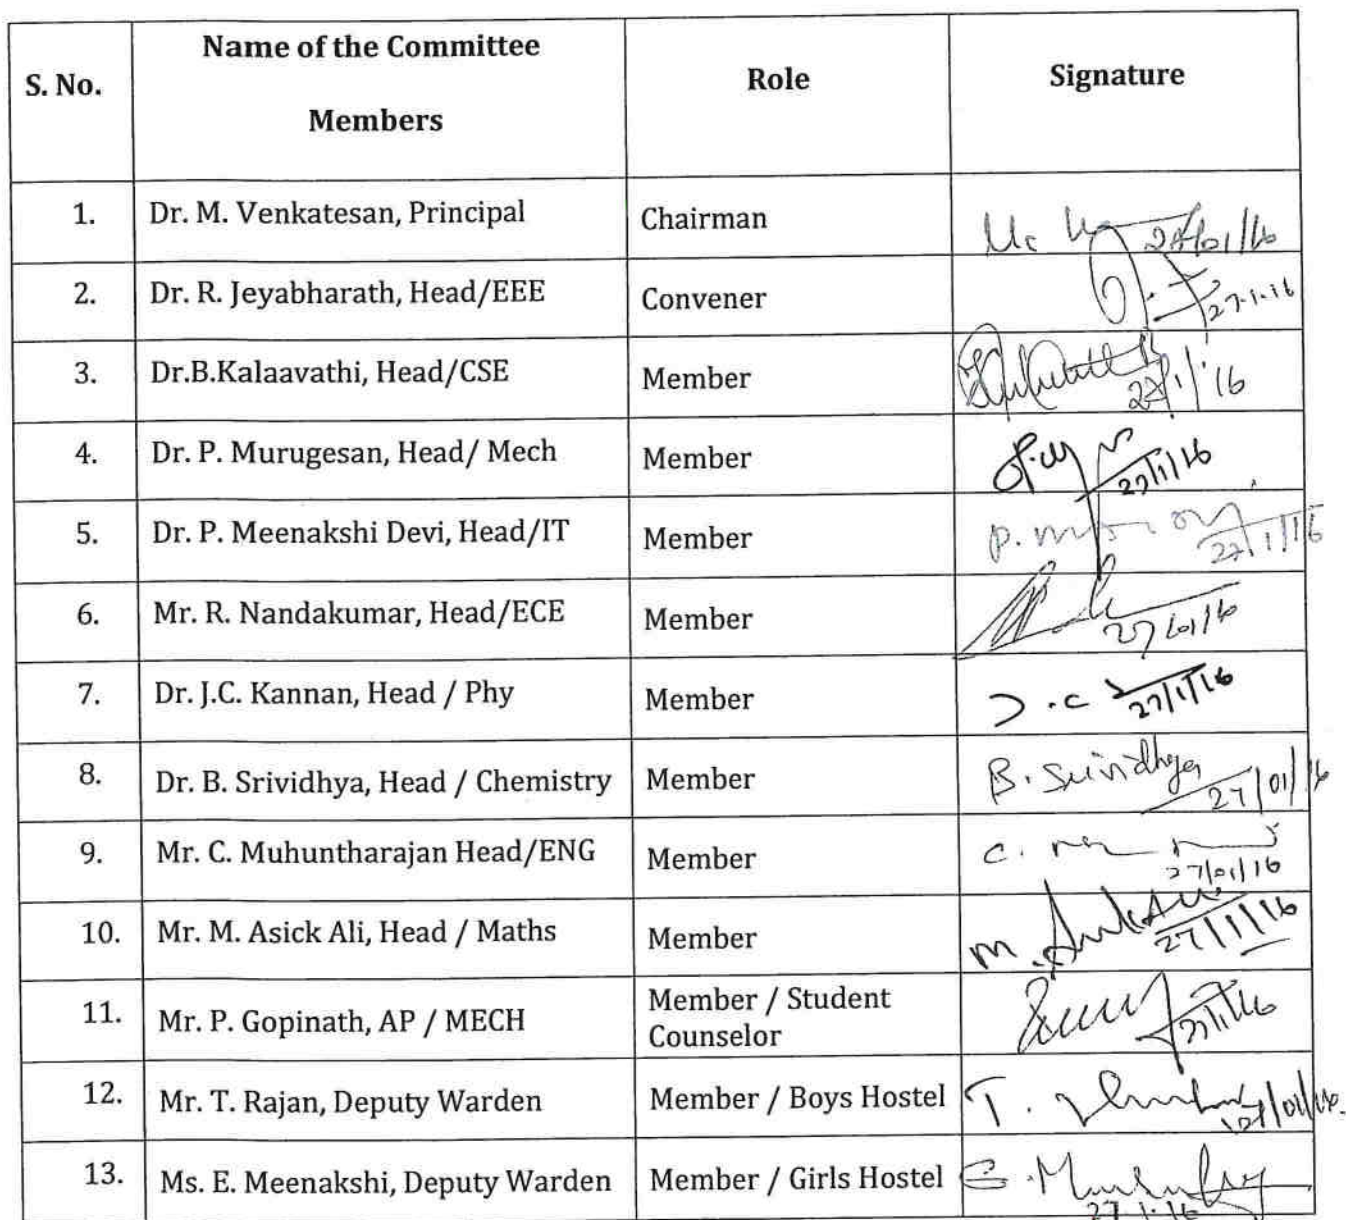 S. No. Name of the Committee Members Role Signature
1. Dr. M. Venkatesan, Principal Chairman 27/01/16
2. Dr. R. Jeyabharath, Head/EEE Convener 27-1-16
3. Dr.B.Kalaavathi, Head/CSE Member 27/1/16
4. Dr. P. Murugesan, Head/ Mech Member 27/1/16
5. Dr. P. Meenakshi Devi, Head/IT Member 27/1/16
6. Mr. R. Nandakumar, Head/ECE Member 27/01/16
7. Dr. J.C. Kannan, Head / Phy Member J.C 27/1/16
8. Dr. B. Srividhya, Head / Chemistry Member B. Srividhya 27/01/16
9. Mr. C. Muhuntharajan Head/ENG Member C. 27/01/16
10. Mr. M. Asick Ali, Head / Maths Member M. 27/1/16
11. Mr. P. Gopinath, AP / MECH Member / Student Counselor 27/1/16
12. Mr. T. Rajan, Deputy Warden Member / Boys Hostel T.
13. Ms. E. Meenakshi, Deputy Warden Member / Girls Hostel E. 27.1.16